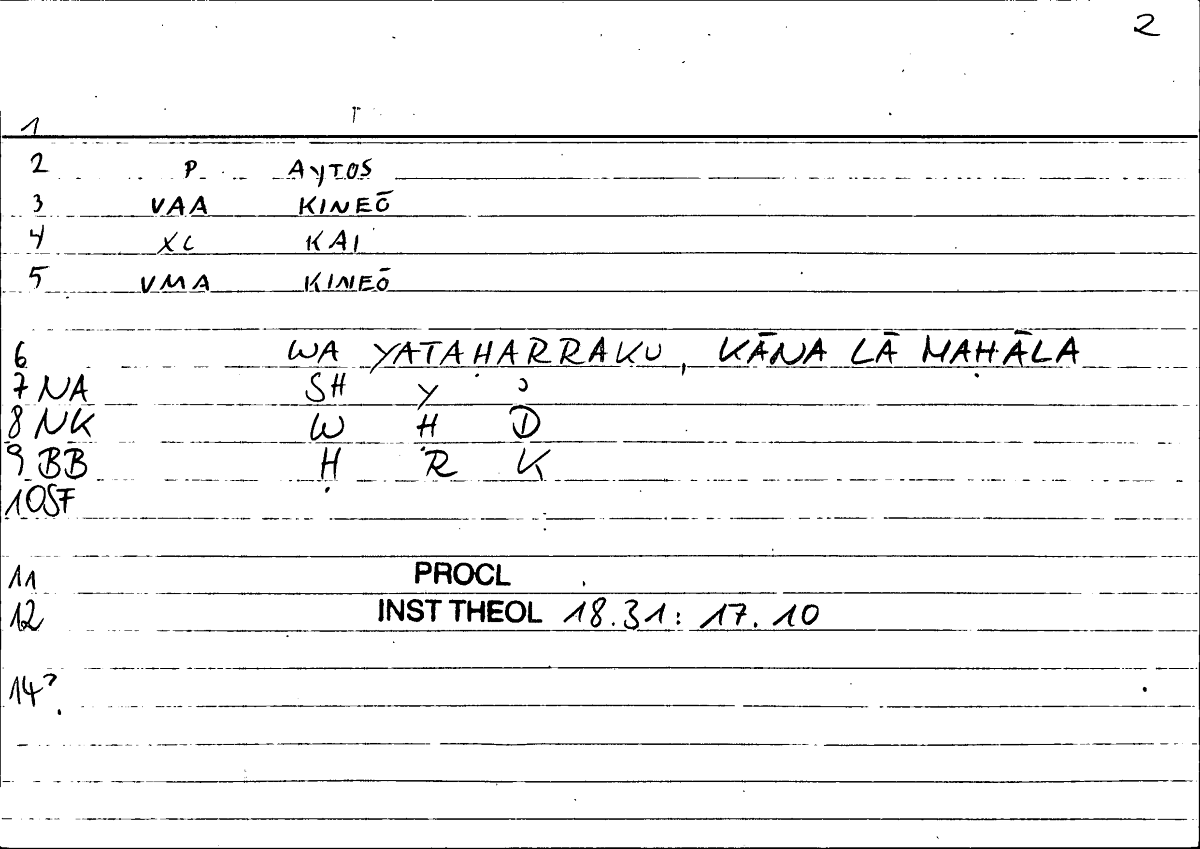 2
1
2 P AYTOS
3 VAA KINEŌ
4 XC KAI
5 VMA KINEŌ
6 WA YATAḤARRAKU, KĀNA LĀ MAḤĀLA
7 NA SH Y ʾ
8 NK W Ḥ D
9 BB Ḥ R K
10 SF
11 PROCL
12 INST THEOL 18.31: 17.10
14?